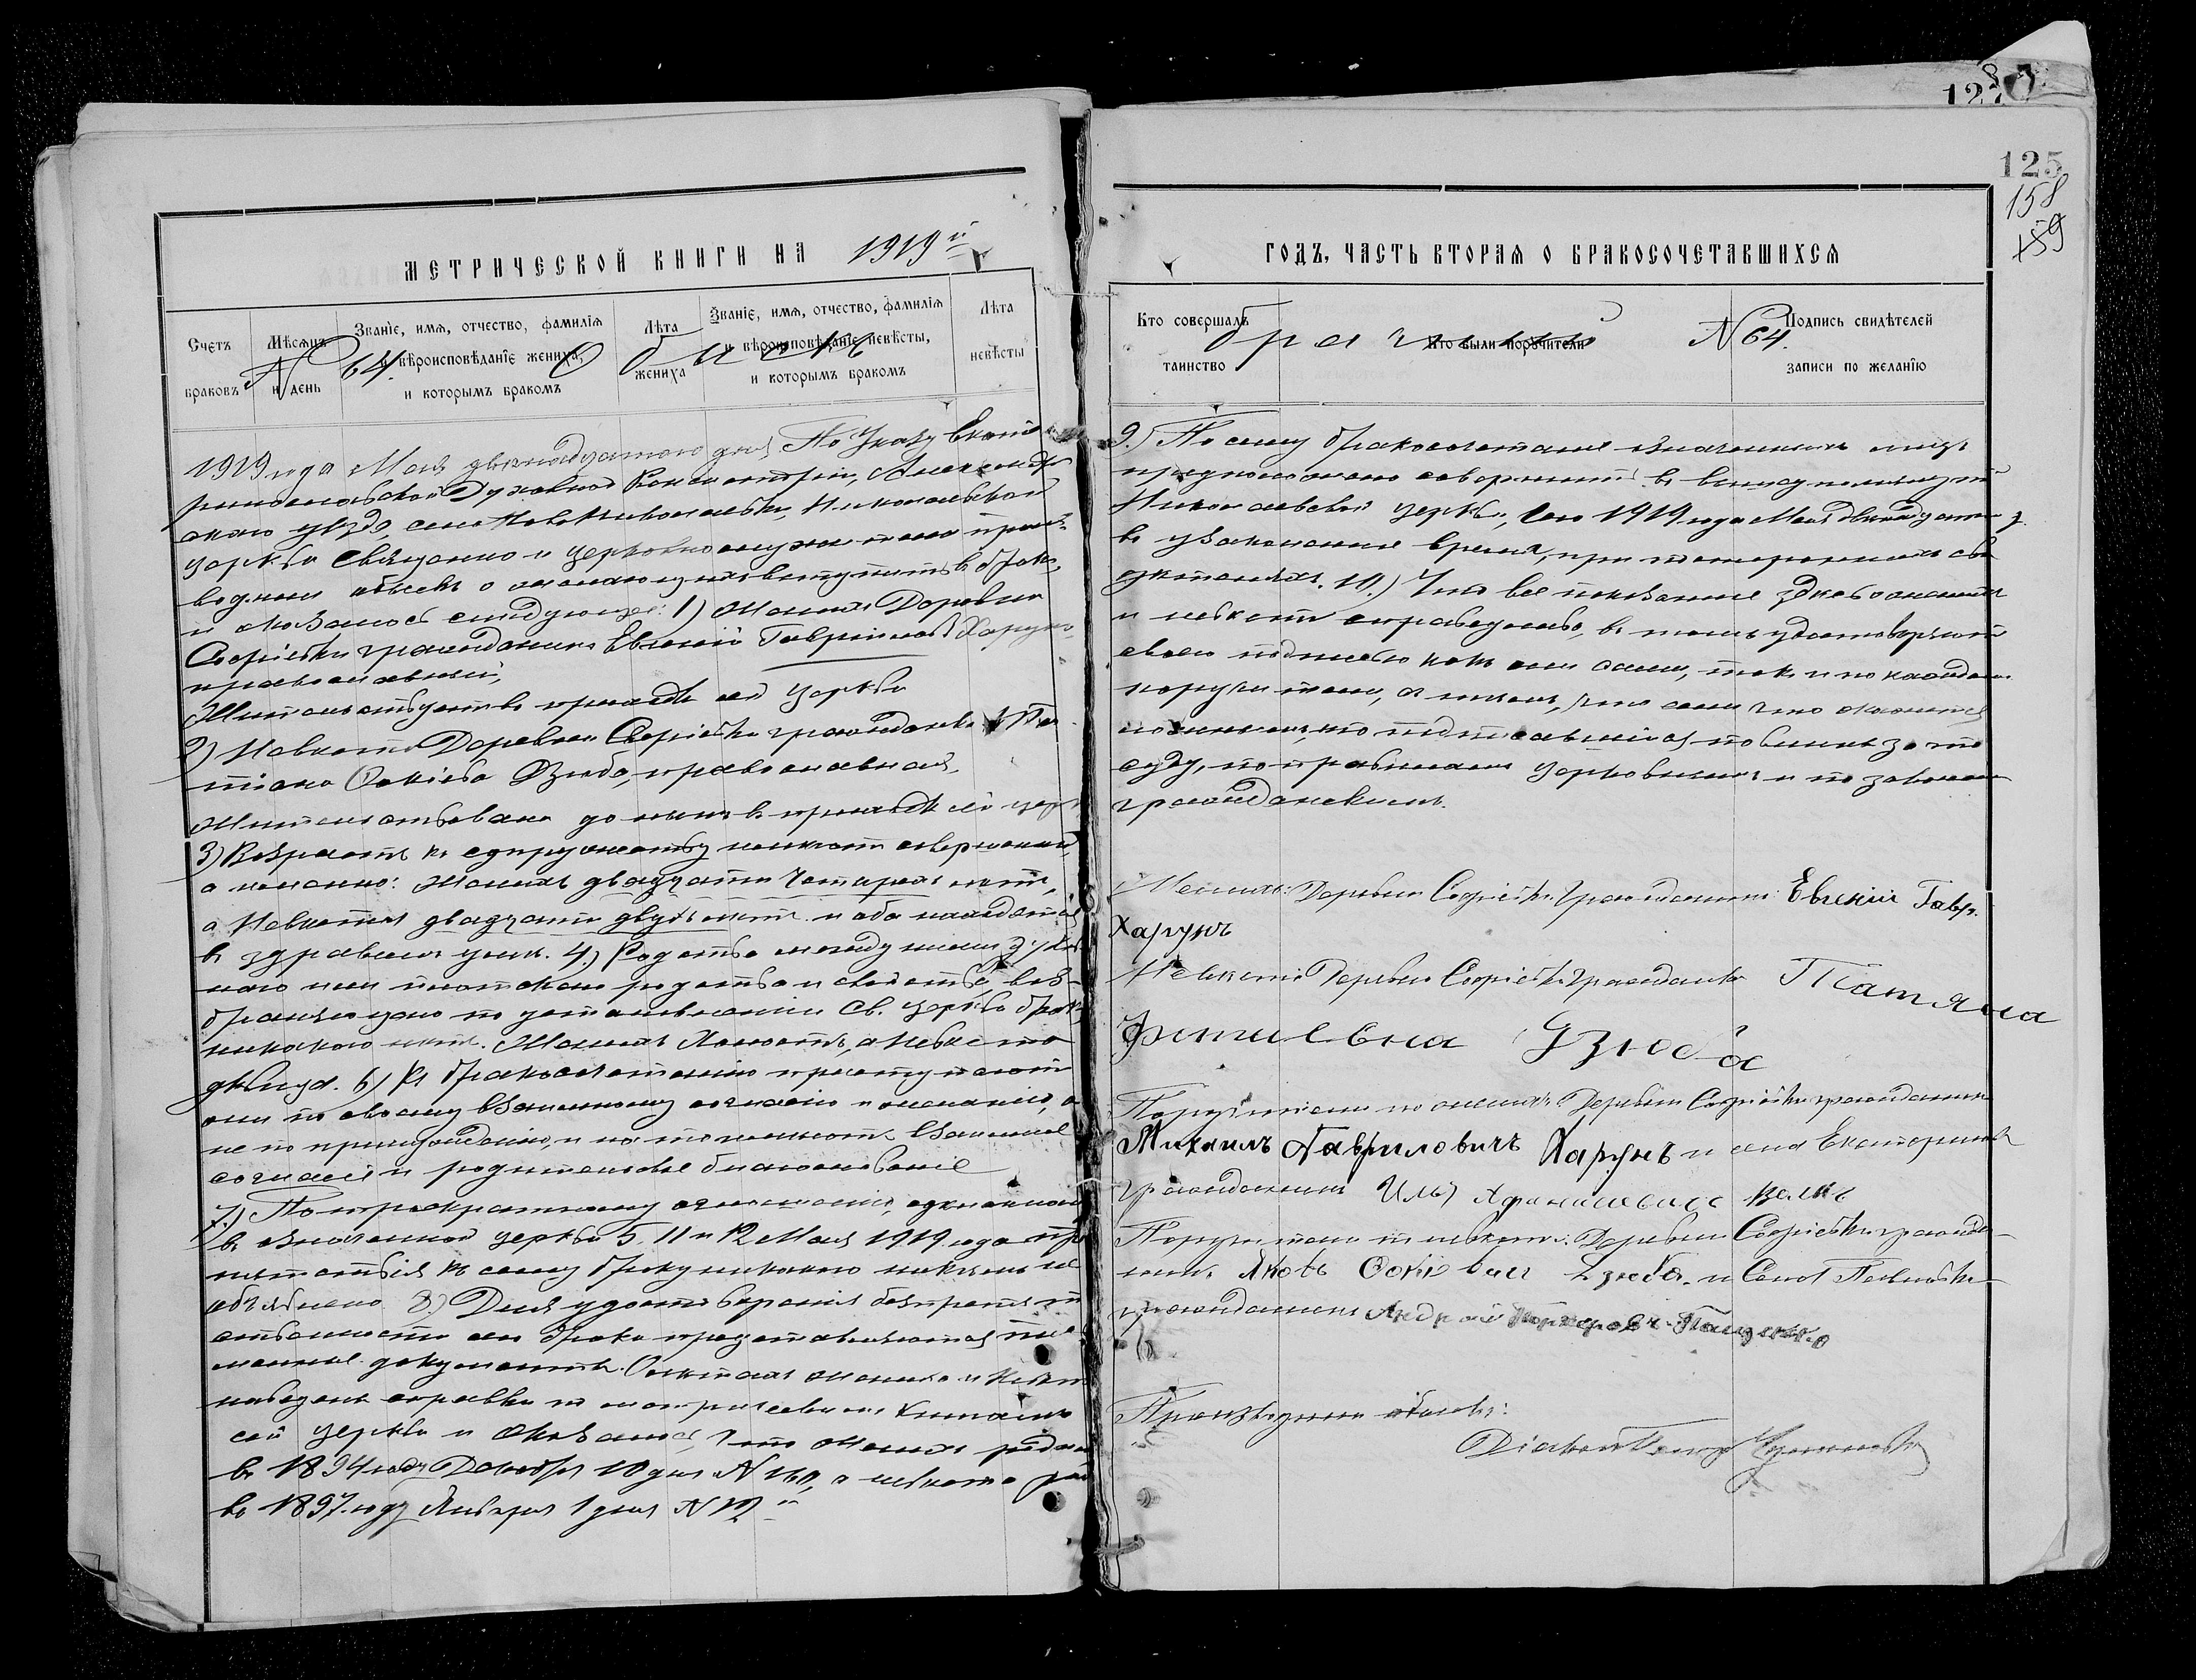 127
125
158
159
МЕТРИЧЕСКОЙ КНИГИ НА 1919й
Счетъ браковъ
Мѣсяцъ и день
Званіе, имя, отчество, фамилія и вѣроисповѣданіе жениха, и которымъ бракомъ
Лѣта жениха
Званіе, имя, отчество, фамилія и вѣроисповѣданіе невѣсты, и которымъ бракомъ
Лѣта невѣсты
N 64. Обыскъ
1919 года Мая двенадцатого дня, По Указу Екате
ринославской Духовной Консисторіи, Александров
скаго уѣзда, села Ново Николаевки, Николаевской
церкви Священно и церковнослужители произ
водили обыскъ о желающихъ вступить въ бракъ,
и оказалось следующее: 1) Женихъ Деревни
Софіевки гражданинъ Евгеній Гавриловъ Харунъ,
православный,
Жительствуетъ въ приходѣ сей церкви
2) Невѣста Деревни Софіевки гражданка Та
тіана Дзюба, православная,
Жительствовала до нынѣ въ приходѣ сей церк
3) Возрастъ къ супружеству имеютъ совершенный,
а именно: Женихъ двадцати четырехъ летъ,
а Невѣста двадцати двухъ летъ и оба находятся
въ здравомъ умѣ. 4) Родства между ними духов
наго или плотскаго родства и свойства воз
браняющаго по установленію Св. церкви бракъ
никакого нетъ. Женихъ Холостъ, а Невѣста
дѣвица. 6) Къ бракосочетанію приступаютъ
они по своему взаимному согласію и желанію, а
не по принужденію, и на то имеютъ взаимное
согласіе и родительское благословеніе
7) По троекратному оглашенію, сдѣланному
въ означенной церкви 5, 11 и 12 Мая 1919 года пре
пятствія къ сему браку никакого никѣмъ не
объявлено 8) Для удостоверенія безпрепят
ственности сего брака представляются пись
менные документы.
наведены справки по метрическимъ книгамъ
сей церкви и оказалось, что женихъ родился
въ 1894 году Декабря 10 дня N 160, а невѣста род
въ 1897 году Января 1 дня N
ГОДЪ, ЧАСТЬ ВТОРАЯ О БРАКОСОЧЕТАВШИХСЯ
Кто совершалъ таинство
Кто были поручители
Подпись свидѣтелей записи по желанію
брачный N 64.
9.) По сему бракосочетаніе означенныхъ лицъ
предположено совершить въ вышеупомянутой
Николаевской церкви, сего 1919 года Мая двенадцатаго
въ узаконенное время, при постороннихъ сви
дѣтеляхъ. 10.) Что все показанное здѣсь о женихѣ
и невѣсте справедливо, въ томъ удостоверяютъ
своею подписью какъ они сами, такъ и по каждомъ
поручители, съ тѣмъ, что если что окажется
ложнымъ, то подписавшіеся повинны за то
суду, по правиламъ церковнымъ и по законамъ
гражданскимъ.
Женихъ: Деревни Софіевки Гражданинъ Евгеній Гавр.
Харунъ
Невѣста Деревни Софіевки гражданка Татяна
Дзюба
Поручители по женихѣ: Деревни Софіевки гражданинъ
Михаилъ Гавриловичъ Харунъ и села Екатериновки
гражданинъ Илья
Поручители по невѣсте: Деревни Софіевки гражда
нинъ Яковъ Дзюба и Села
гражданинъ Андрей
Производили обыскъ:
Діаконъ